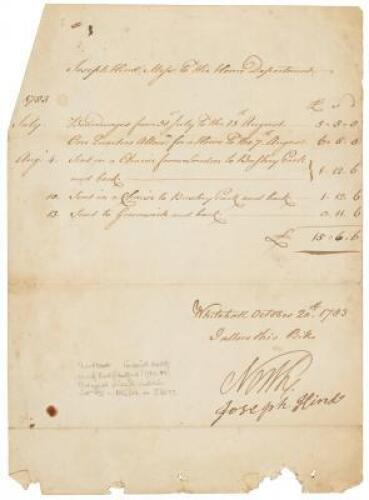 Joseph Hind, Mess.r to the Home Department
1783
£ s D
July
from July to the 13th August 5 - 5 - 0
One Quarters Allow.ce for a Horse to the 7th August 6 - 5 - 0
Aug.t 4. Sent in a Chaise from London to Bushey Park
and back 1 - 12 - 6
10. Sent in a Chaise to Bushey Park and back 1 - 12 - 6
13. Sent to Greenwich and back 0 - 11 - 6
£ 15 - 6 - 6
Whitehall October 20th 1783
I allow this Bill
North
Joseph Hind